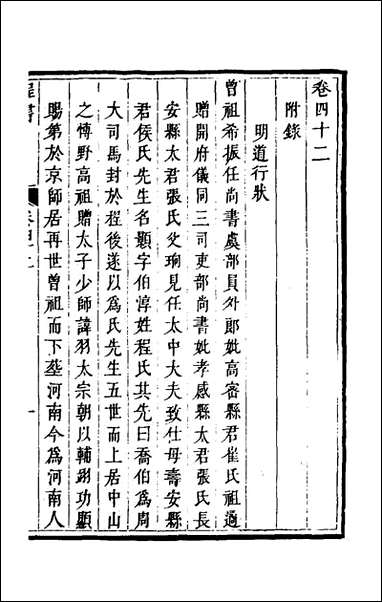 卷四十二
附錄
明道行狀
曾祖希振任尚書虞部員外郎妣高密縣君崔氏祖遹
贈開府儀同三司吏部尚書妣孝感縣太君張氏長
安縣太君張氏父珦見任太中大夫致仕母壽安縣
君侯氏先生名顥字伯淳姓程氏其先曰喬伯為周
大司馬封於程後遂以為氏先生五世而上居中山
之博野高祖贈太子少師諱羽太宗朝以輔翊功顯
賜第於京師居再世曾祖而下塟河南今為河南人